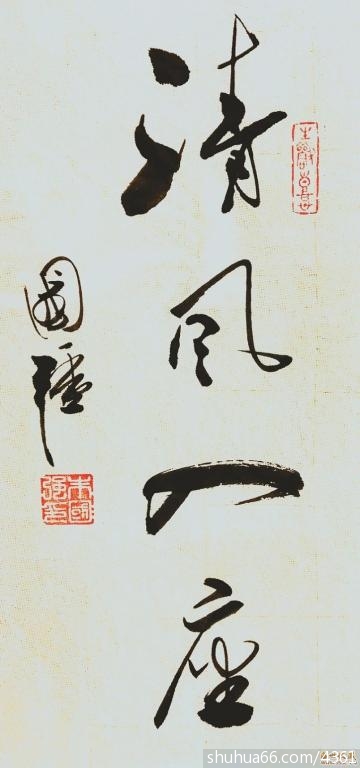 清风入座
國强
shuhua66.com/4361